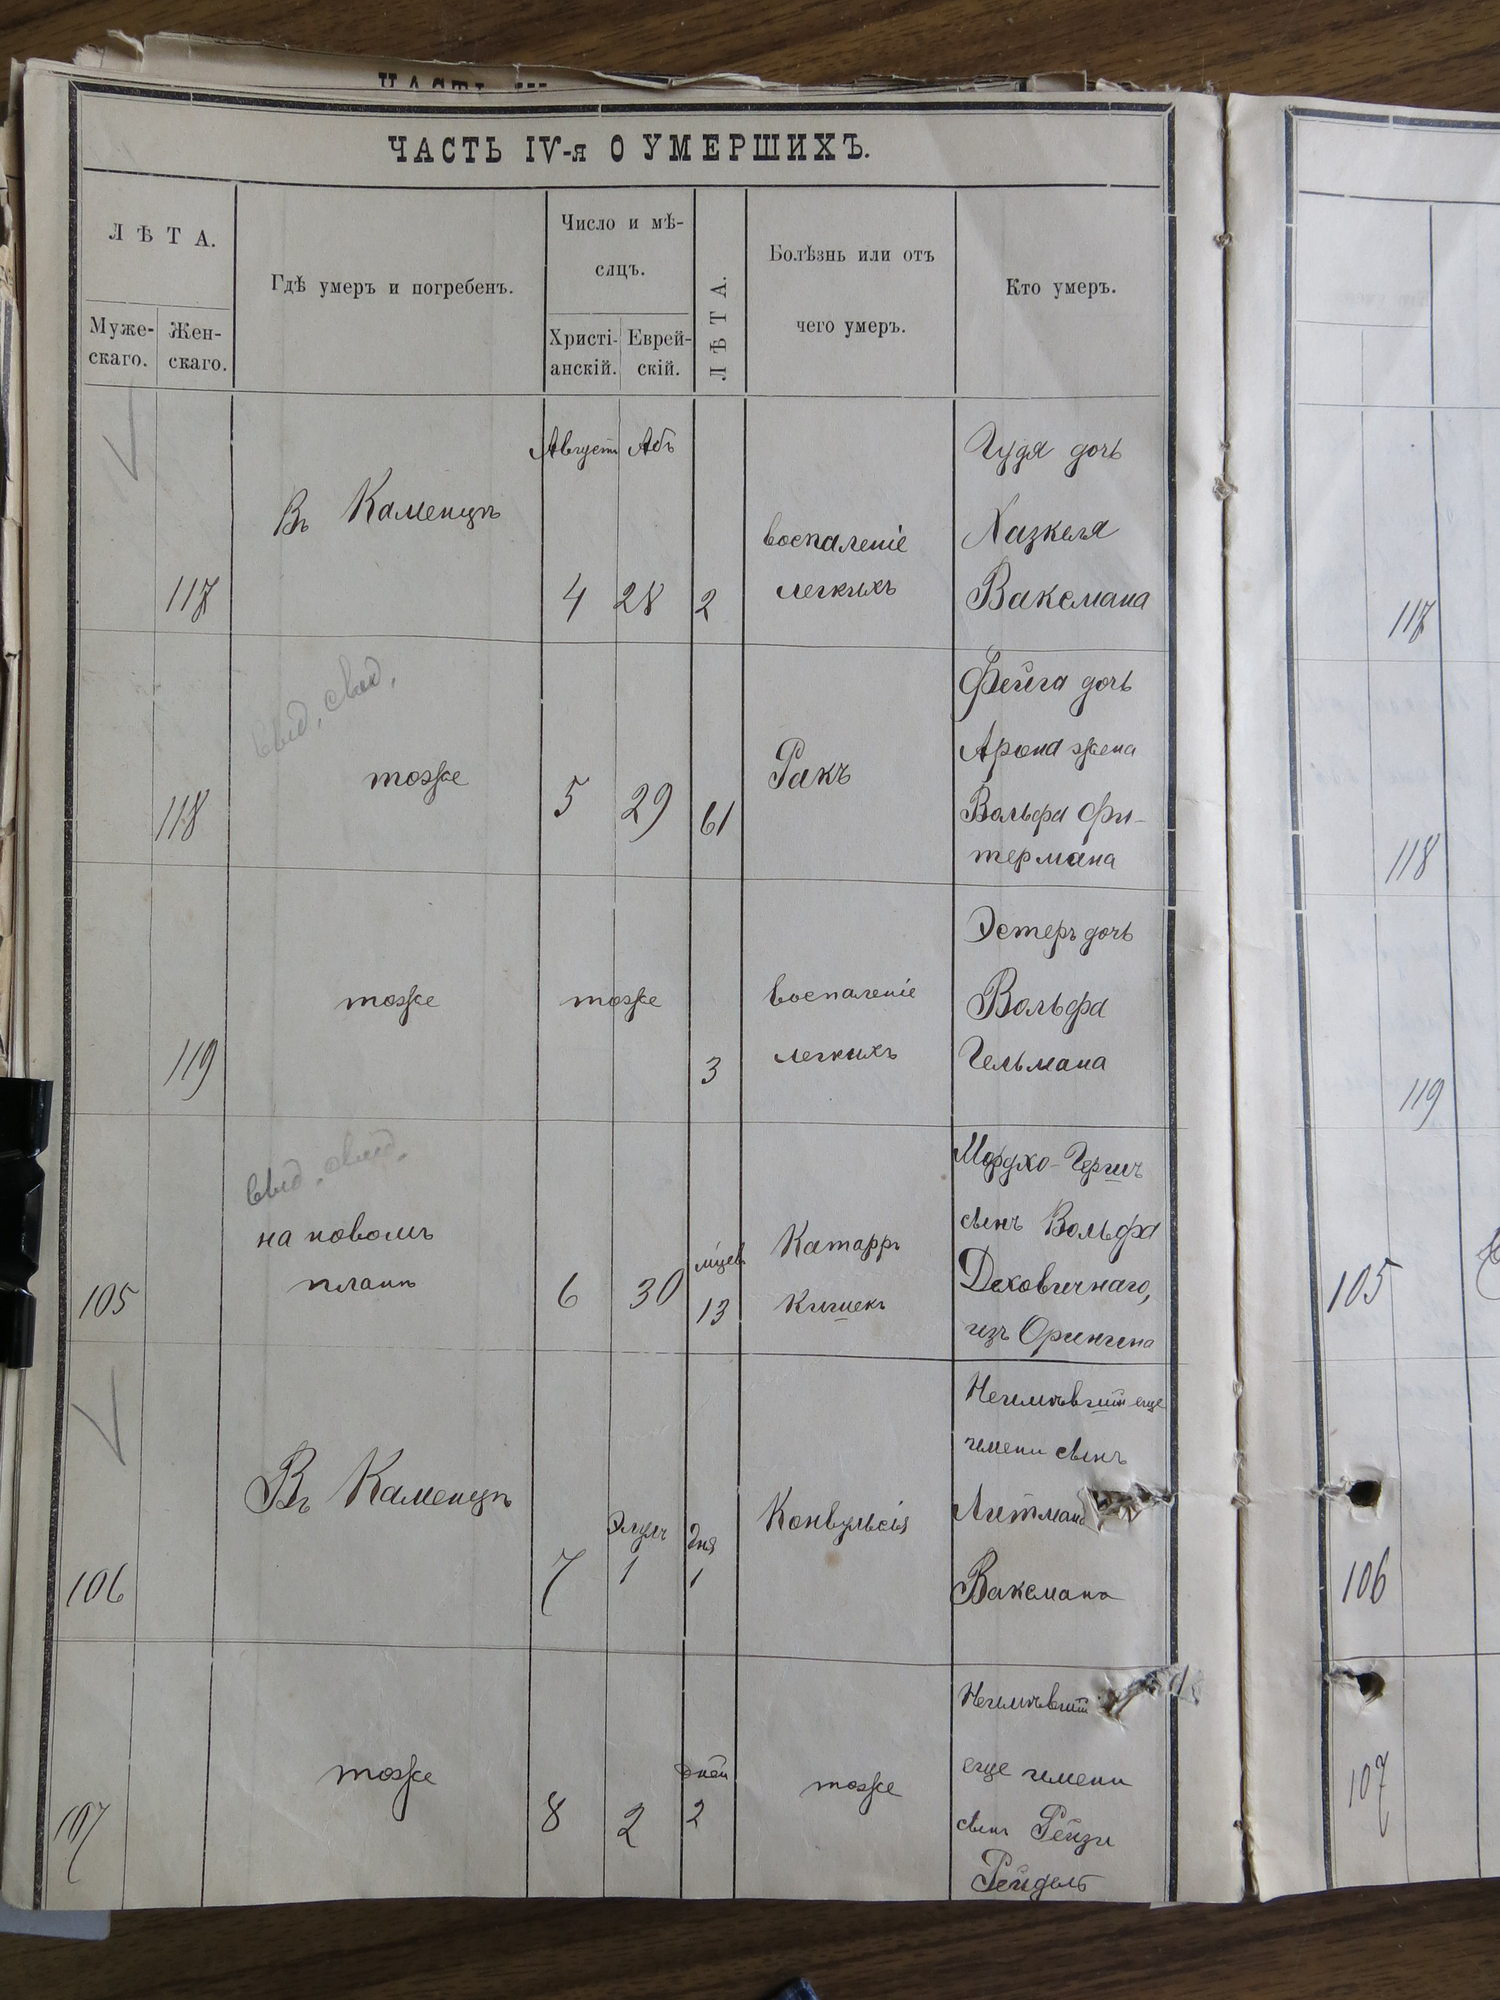 ЧАСТЬ IV-я О УМЕРШИХЪ.
ЛѢТА.
Муже-
скаго.
Жен-
скаго.
Гдѣ умеръ и погребенъ.
Число и мѣ-
сяцъ.
Христі-
анскій.
Еврей-
скій.
ЛѢТА.
Болѣзнь или отъ
чего умеръ.
Кто умеръ.
117
Въ Каменцѣ
Августъ
4
Абъ
28
2
воспаленіе
легкихъ
Гудя дочь
Хазкеля
Ваксмана
117
118
тоже
5
29
61
Ракъ
Фейга дочь
Арона жена
Вольфа Фи-
термана
118
119
тоже
тоже
3
воспаленіе
легкихъ
Эстеръ дочь
Вольфа
Гельмана
119
105
на новомъ
планѣ
6
30
мцев
13
Катарръ
Кишекъ
Мордхо-Гершъ
сынъ Вольфа
Деховичнаго,
изъ Оринина
105
106
Въ Каменцѣ
7
Элулъ
1
дня
1
Конвульсія
Неимѣвшій еще
имени сынъ
Литмана
Ваксмана
106
107
тоже
8
2
дней
2
тоже
Неимѣвшій
еще имени
сынъ Рейзи
Рейдель
107